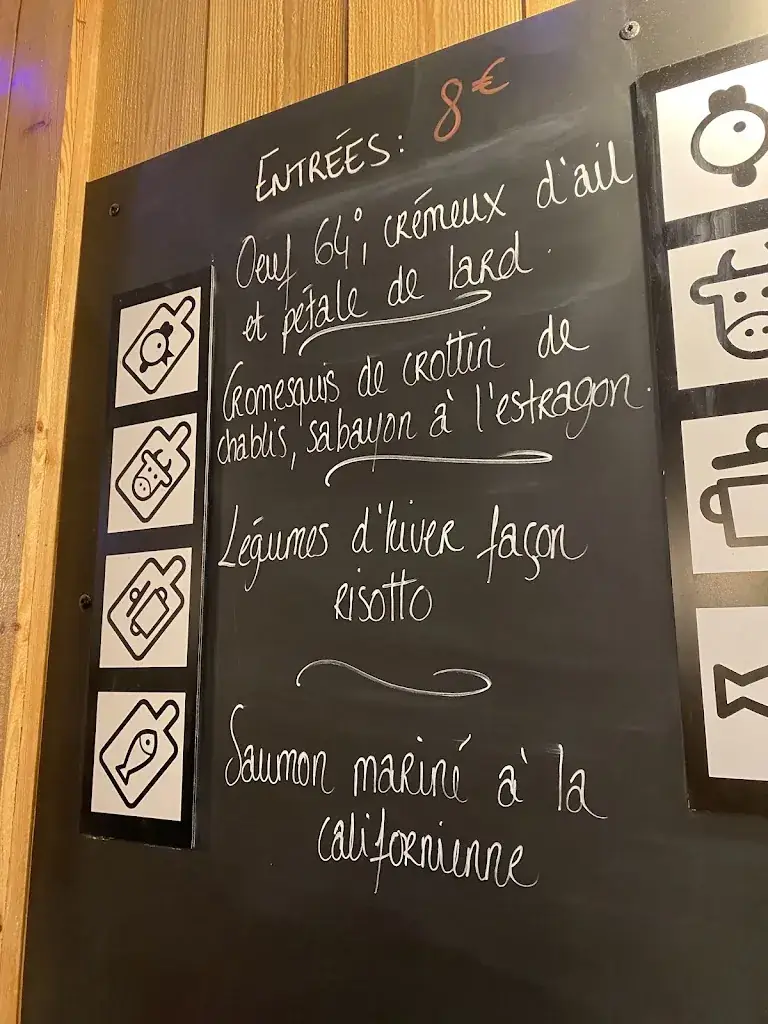 ENTRÉES: 8€
Oeuf 64°, crémeux d'ail
et pétale de lard.
Cromesquis de crottin de
chablis, sabayon à l'estragon.
Légumes d'hiver façon
RISOTTO
Saumon mariné à la
californienne